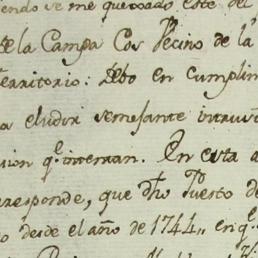 endo se me quexado este del
de la Campa Cos Vecino de la
territorio: Debo en cumplim
a eludir semejante intrus
sion q.e intentan. En esta a
rresponde, que dho Puesto de
o desde el año de 1744,, en q.e